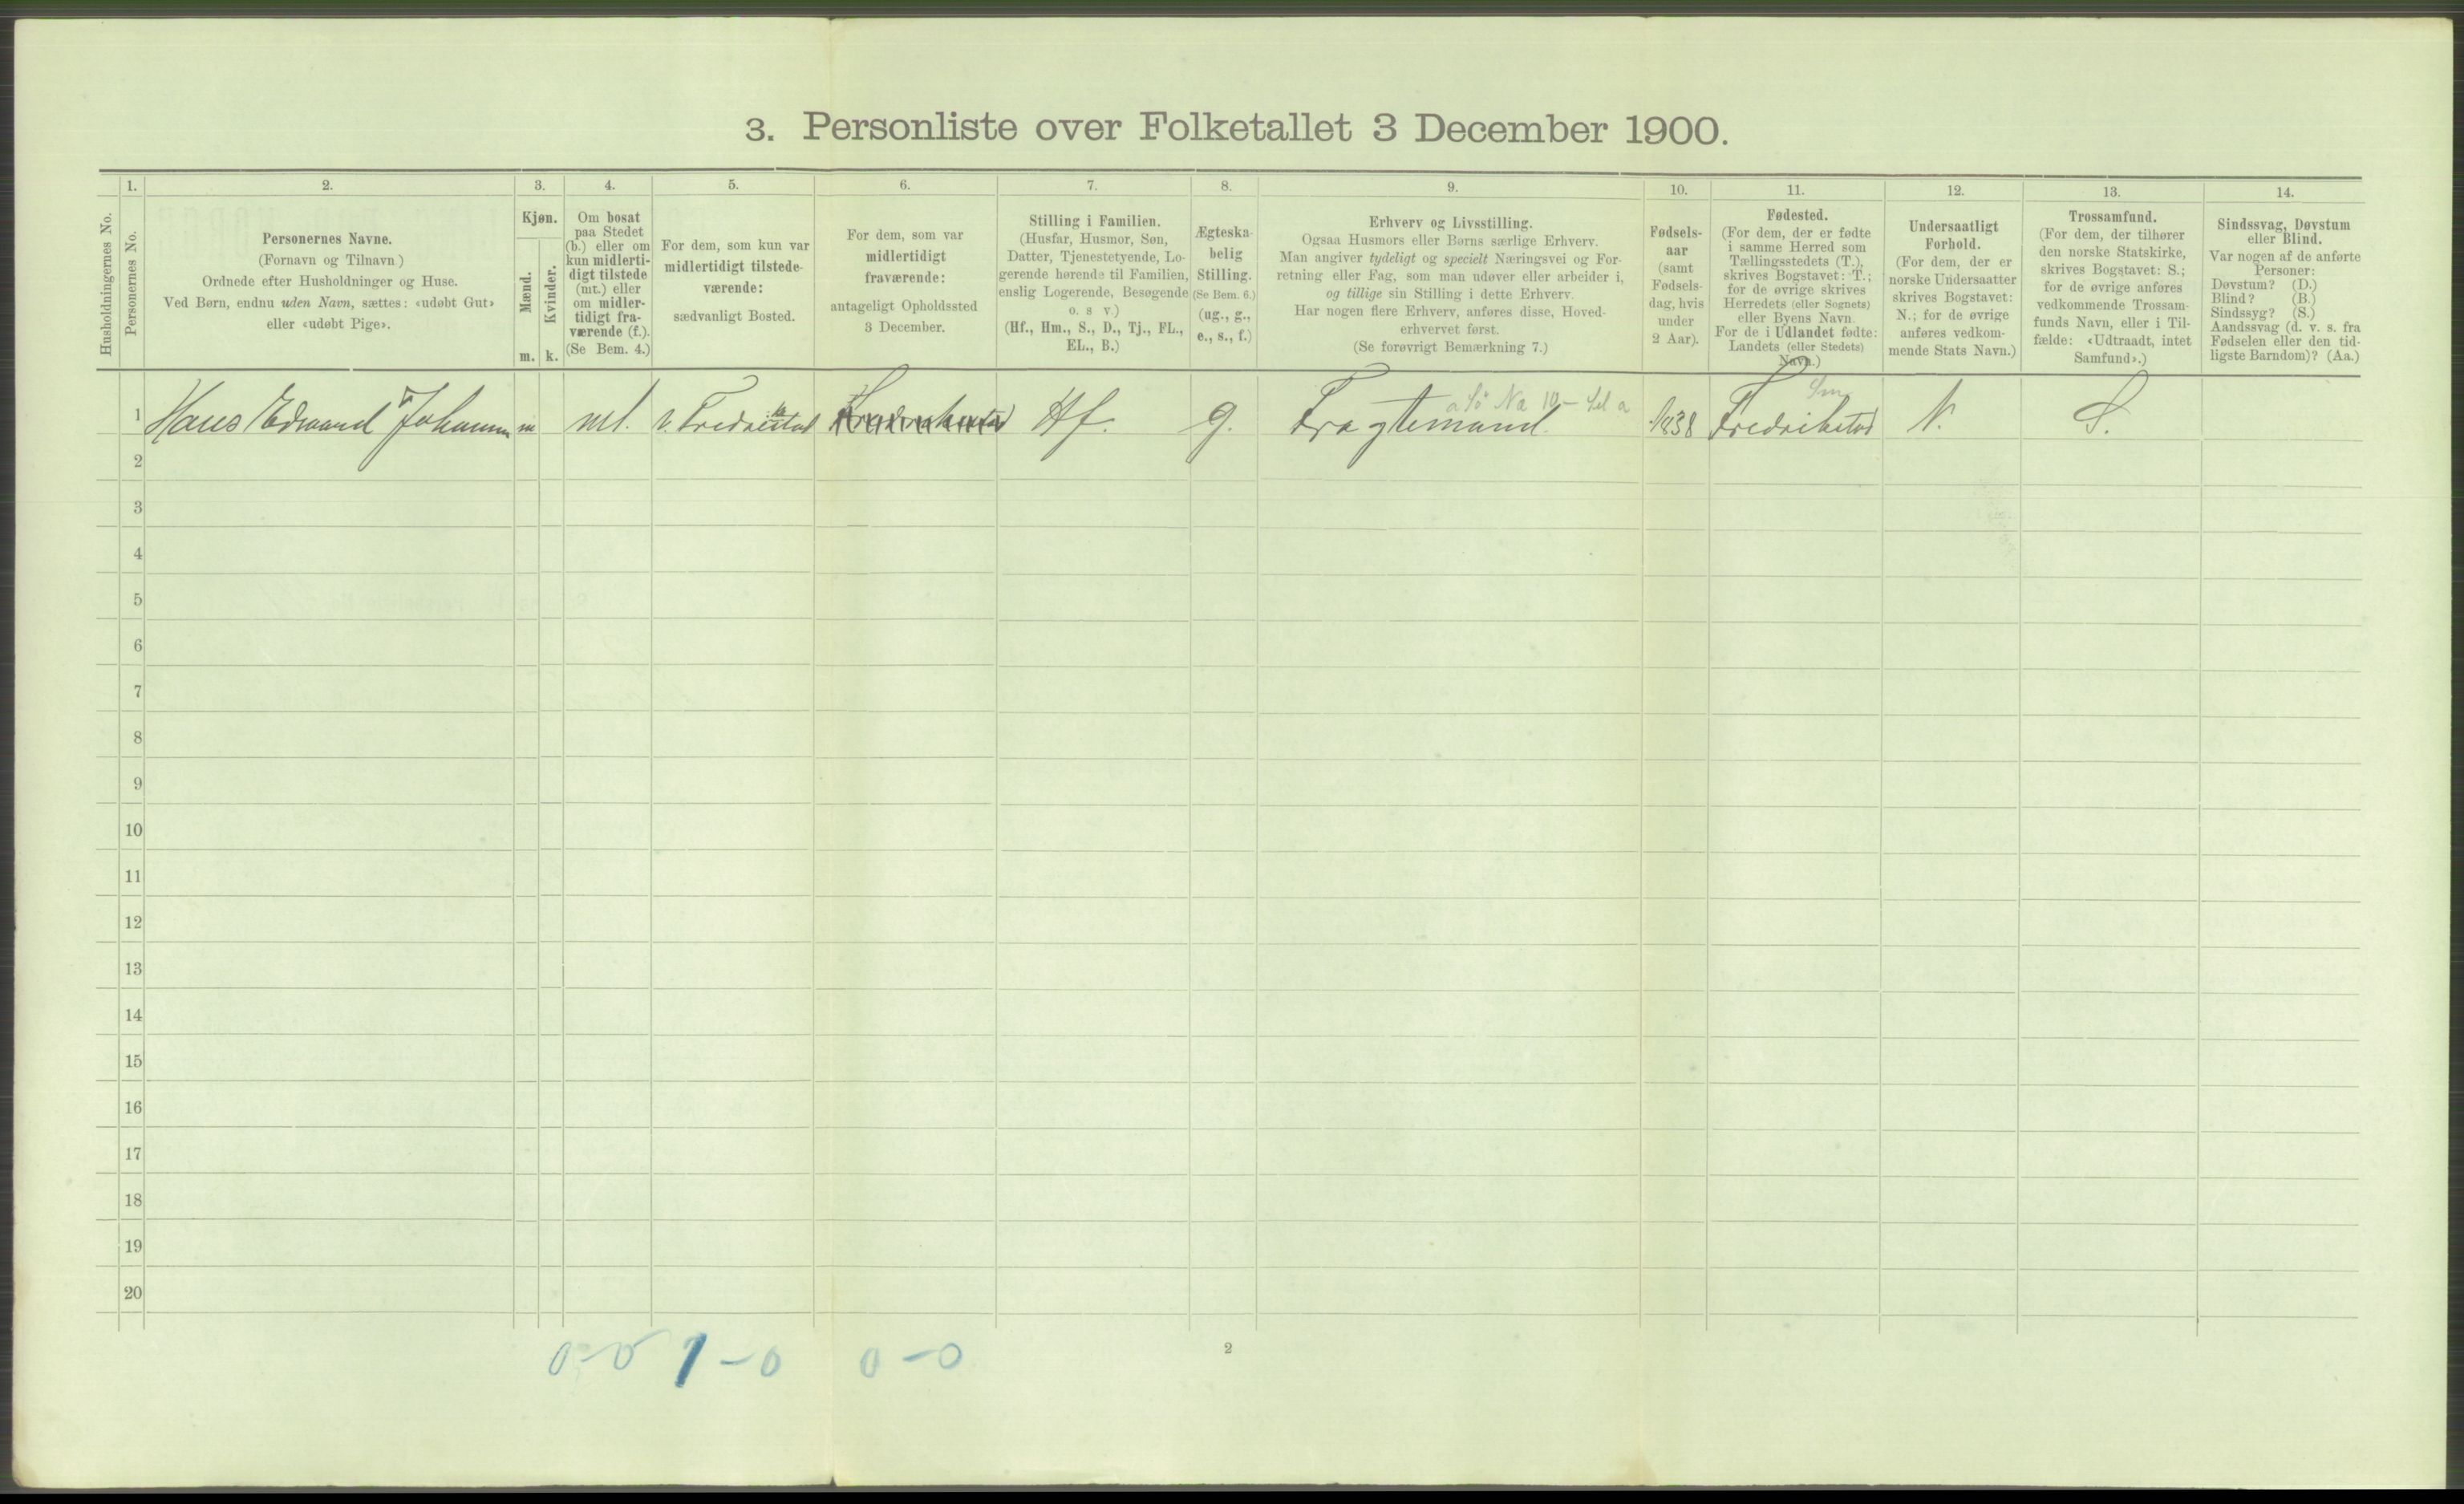 3. Personliste over Folketallet 3 December 1900.
Husholdningernes No.
1.
Personernes No.
2.
Personernes Navne.
(Fornavn og Tilnavn)
Ordnede efter Husholdninger og Huse.
Ved Børn, endnu uden Navn, sættes: «udøbt Gut»
eller «udøbt Pige».
3.
Kjøn.
Mænd.
m.
Kvinder.
k.
4.
Om bosat
paa Stedet
(b.) eller om
kun midlerti-
digt tilstede
(mt.) eller
om midler-
tidigt fra-
værende (f.).
(Se Bem. 4.)
5.
For dem, som kun var
midlertidigt tilstede-
værende:
sædvanligt Bosted.
6.
For dem, som var
midlertidigt
fraværende:
antageligt Opholdssted
3 December.
7.
Stilling i Familien.
(Husfar, Husmor, Søn,
Datter, Tjenestetyende, Lo-
gerende hørende til Familien,
enslig Logerende, Besøgende
o. s v.)
(Hf., Hm., S., D., Tj., FL.,
EL., B.)
8.
Ægteska-
belig
Stilling.
(Se Bem. 6.)
(ug., g.,
e., s., f.)
9.
Erhverv og Livsstilling.
Ogsaa Husmors eller Børns særlige Erhverv.
Man angiver tydeligt og specielt Næringsvei og For-
retning eller Fag, som man udøver eller arbeider i,
og tillige sin Stilling i dette Erhverv.
Har nogen flere Erhverv, anføres disse, Hoved-
erhvervet først.
(Se forøvrigt Bemærkning 7.)
10.
Fødsels-
aar
(samt
Fødsels-
dag, hvis
under
2 Aar).
11.
Fødested.
(For dem, der er fødte
i samme Herred som
Tællingsstedets (T.),
skrives Bogstavet: T.;
for de øvrige skrives
Herredets (eller Sognets)
eller Byens Navn.
For de i Udlandet fødte:
Landets (eller Stedets)
Navn.)
12.
Undersaatligt
Forhold.
(For dem, der er
norske Undersaatter
skrives Bogstavet:
N.; for de øvrige
anføres vedkom-
mende Stats Navn.)
13.
Trossamfund.
(For dem, der tilhører
den norske Statskirke,
skrives Bogstavet: S.;
for de øvrige anføres
vedkommende Trossam-
funds Navn, eller i Til-
fælde: «Udtraadt, intet
Samfund».)
14.
Sindssvag, Døvstum
eller Blind.
Var nogen af de anførte
Personer:
Døvstum? (D.)
Blind? (B.)
Sindssyg? (S.)
Aandssvag (d. v. s. fra
Fødselen eller den tid-
ligste Barndom)? (Aa.)
1 Hans Edvard Johannsen m mt. Fredrikstad Hf. g. Fragtemand 1838 Fredrikstad N. S.
2
3
4
5
6
7
8
9
10
11
12
13
14
15
16
17
18
19
20
0-0 1-0 0-0
2